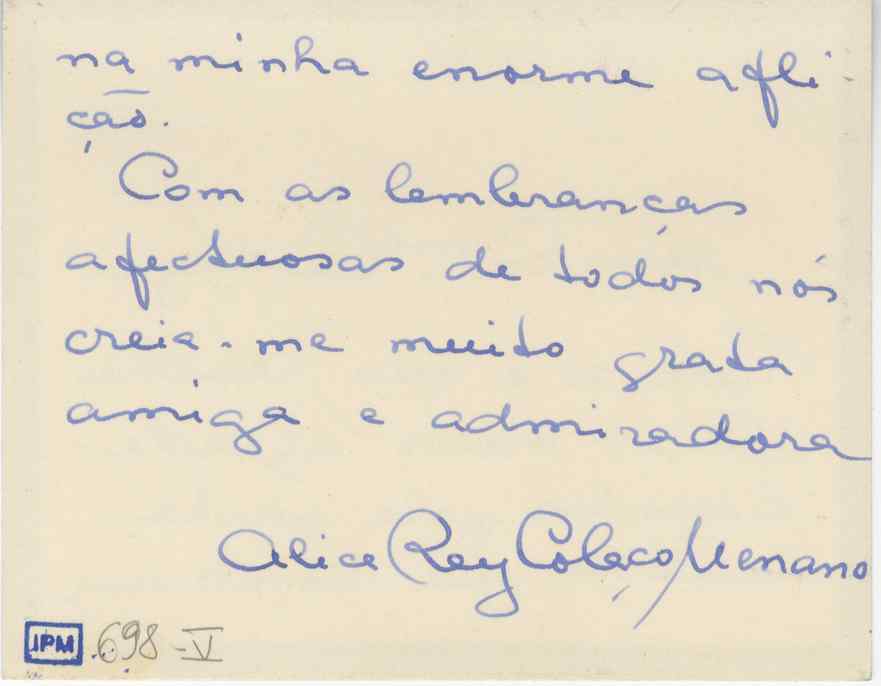 na minha enorme afli
ção.
Com as lembranças
afectuosas de todos nós
creia-me muito grata
amiga e admiradora
Alice Rey Colaço Menano
IPM 698-V